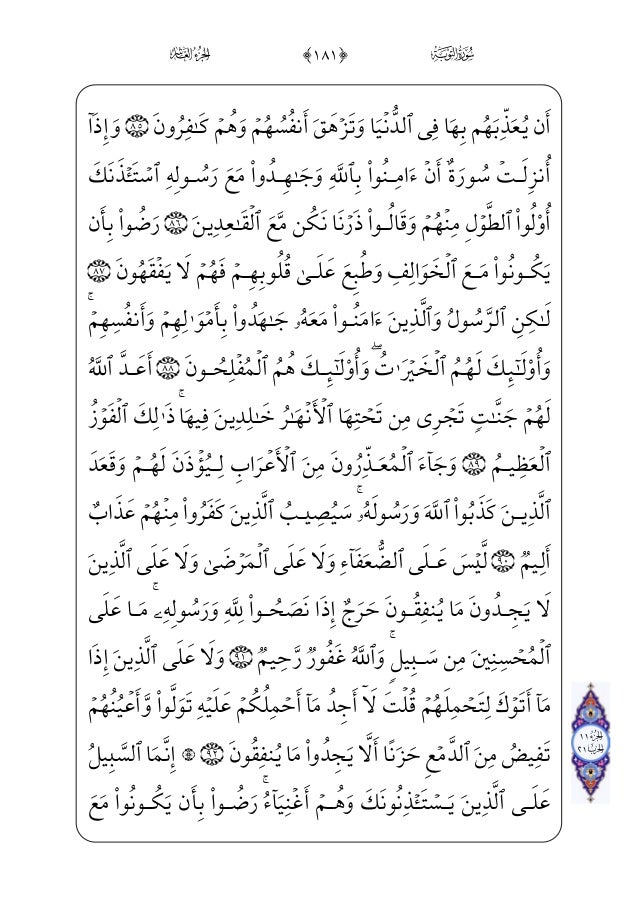 سُورَةُ التَّوْبَةِ ﴿١٨١﴾ الجُزْءُ العَاشِرُ
أَن يُعَذِّبَهُم بِهَا فِى ٱلدُّنْيَا وَتَزْهَقَ أَنفُسُهُمْ وَهُمْ كَـٰفِرُونَ ٨٥ وَإِذَآ
أُنزِلَتْ سُورَةٌ أَنْ ءَامِنُوا۟ بِٱللَّهِ وَجَـٰهِدُوا۟ مَعَ رَسُولِهِ ٱسْتَـْٔذَنَكَ
أُو۟لُوا۟ ٱلطَّوْلِ مِنْهُمْ وَقَالُوا۟ ذَرْنَا نَكُن مَّعَ ٱلْقَـٰعِدِينَ ٨٦ رَضُوا۟ بِأَن
يَكُونُوا۟ مَعَ ٱلْخَوَالِفِ وَطُبِعَ عَلَىٰ قُلُوبِهِمْ فَهُمْ لَا يَفْقَهُونَ ٨٧
لَـٰكِنِ ٱلرَّسُولُ وَٱلَّذِينَ ءَامَنُوا۟ مَعَهُۥ جَـٰهَدُوا۟ بِأَمْوَٰلِهِمْ وَأَنفُسِهِمْ ۚ
وَأُو۟لَـٰٓئِكَ لَهُمُ ٱلْخَيْرَٰتُ ۖ وَأُو۟لَـٰٓئِكَ هُمُ ٱلْمُفْلِحُونَ ٨٨ أَعَدَّ ٱللَّهُ
لَهُمْ جَنَّـٰتٍ تَجْرِى مِن تَحْتِهَا ٱلْأَنْهَـٰرُ خَـٰلِدِينَ فِيهَا ۚ ذَٰلِكَ ٱلْفَوْزُ
ٱلْعَظِيمُ ٨٩ وَجَآءَ ٱلْمُعَذِّرُونَ مِنَ ٱلْأَعْرَابِ لِيُؤْذَنَ لَهُمْ وَقَعَدَ
ٱلَّذِينَ كَذَبُوا۟ ٱللَّهَ وَرَسُولَهُۥ ۚ سَيُصِيبُ ٱلَّذِينَ كَفَرُوا۟ مِنْهُمْ عَذَابٌ
أَلِيمٌ ٩٠ لَّيْسَ عَلَى ٱلضُّعَفَآءِ وَلَا عَلَى ٱلْمَرْضَىٰ وَلَا عَلَى ٱلَّذِينَ
لَا يَجِدُونَ مَا يُنفِقُونَ حَرَجٌ إِذَا نَصَحُوا۟ لِلَّهِ وَرَسُولِهِۦ ۚ مَا عَلَى
ٱلْمُحْسِنِينَ مِن سَبِيلٍ ۚ وَٱللَّهُ غَفُورٌ رَّحِيمٌ ٩١ وَلَا عَلَى ٱلَّذِينَ إِذَا
مَآ أَتَوْكَ لِتَحْمِلَهُمْ قُلْتَ لَآ أَجِدُ مَآ أَحْمِلُكُمْ عَلَيْهِ تَوَلَّوا۟ وَّأَعْيُنُهُمْ
تَفِيضُ مِنَ ٱلدَّمْعِ حَزَنًا أَلَّا يَجِدُوا۟ مَا يُنفِقُونَ ٩٢ ۞ إِنَّمَا ٱلسَّبِيلُ
عَلَى ٱلَّذِينَ يَسْتَـْٔذِنُونَكَ وَهُمْ أَغْنِيَآءُ ۚ رَضُوا۟ بِأَن يَكُونُوا۟ مَعَ
الجزء ١١
الحزب ٢١